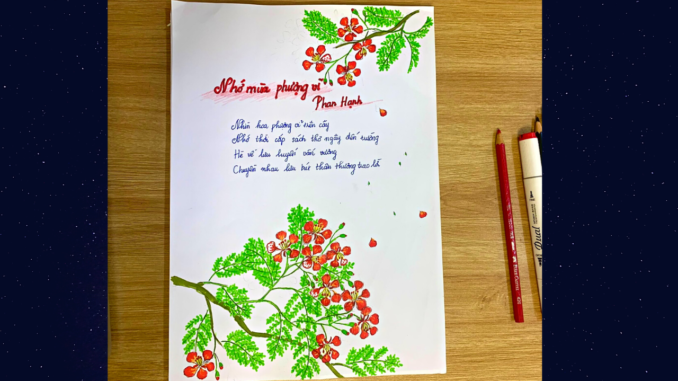 Nhớ mùa phượng vĩ
Phan Hạnh
Nhìn hoa phượng vĩ trên cây
Nhớ thời cắp sách thơ ngây đến trường
Hè về lưu luyến vấn vương
Chuyền nhau lưu bút thân thương trao lời
Dual